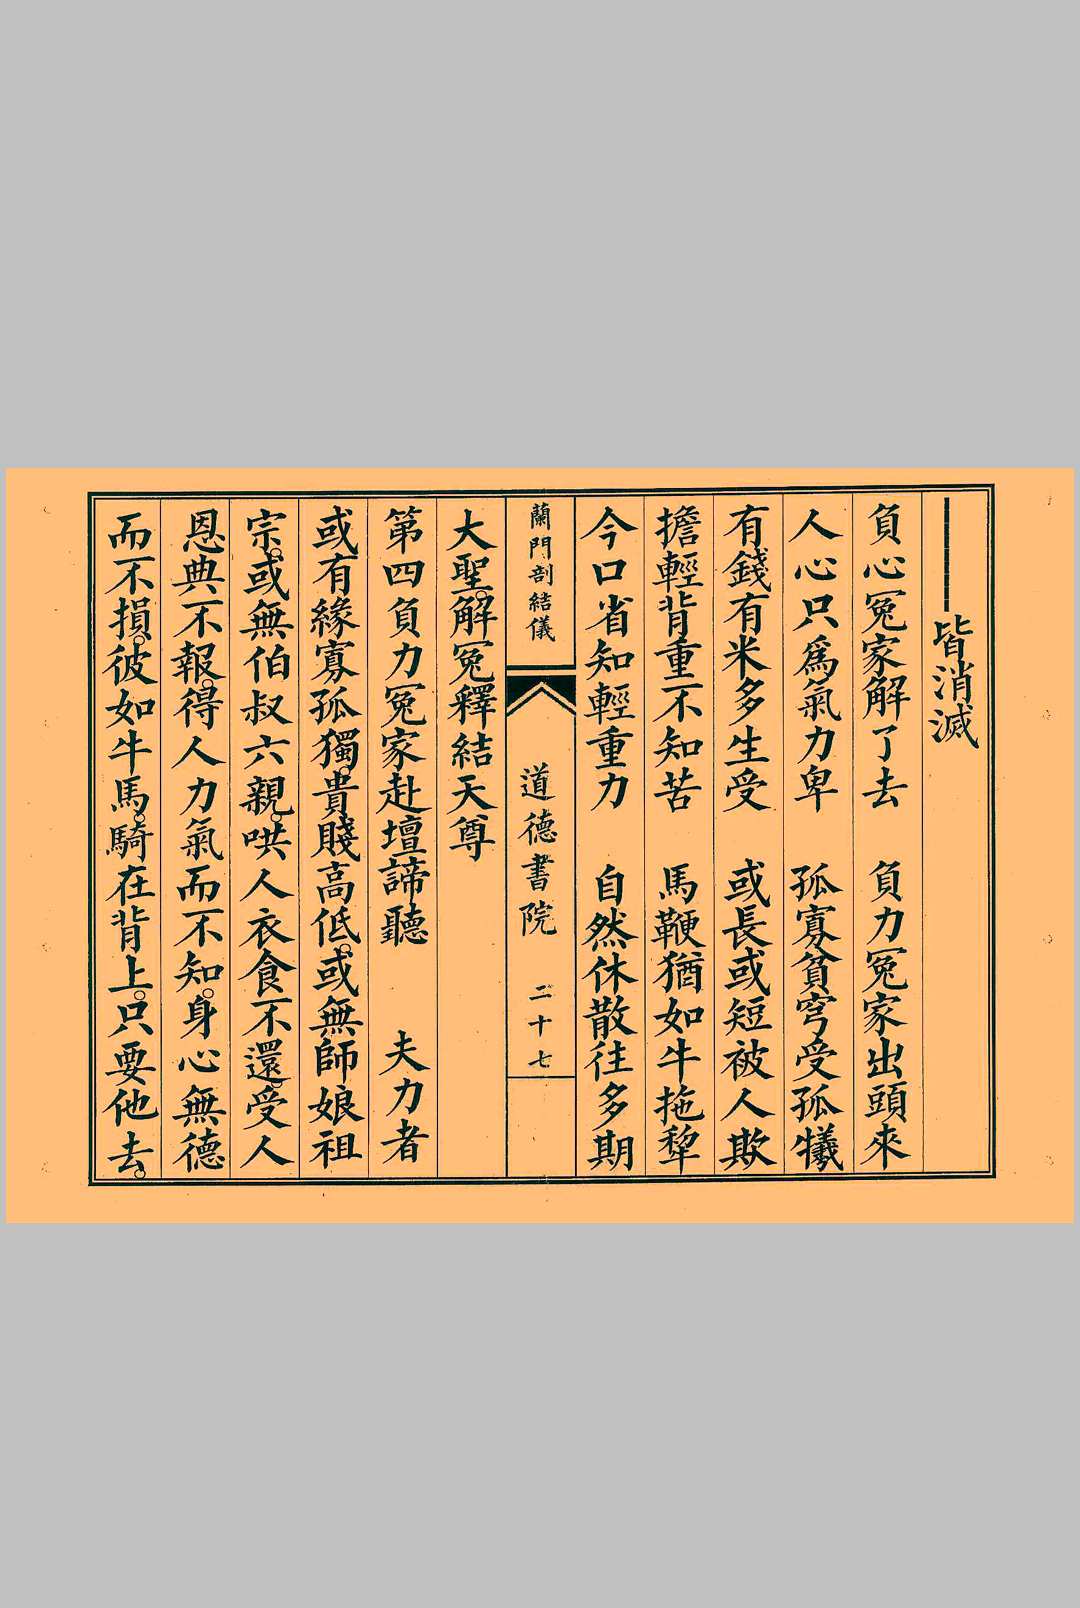 皆消滅
負心冤家解了去　負力冤家出頭來
人心只爲氣力卑　孤寡貧穷受孤犧
有錢有米多生受　或長或短被人欺
擔輕背重不知苦　馬鞭猶如牛拖犂
今口省知輕重力　自然休散往多期
蘭門剖結儀　道德書院　二十七
大聖。解冤釋結天尊
第四負力冤家赴壇諦聽　夫力者
或有緣寡孤獨。貴賤高低。或無師娘祖
宗。或無伯叔六親。哄人衣食不還。受人
恩典不報。得人力氣而不知。身心無德
而不損。彼如牛馬。騎在背上。只要他去。